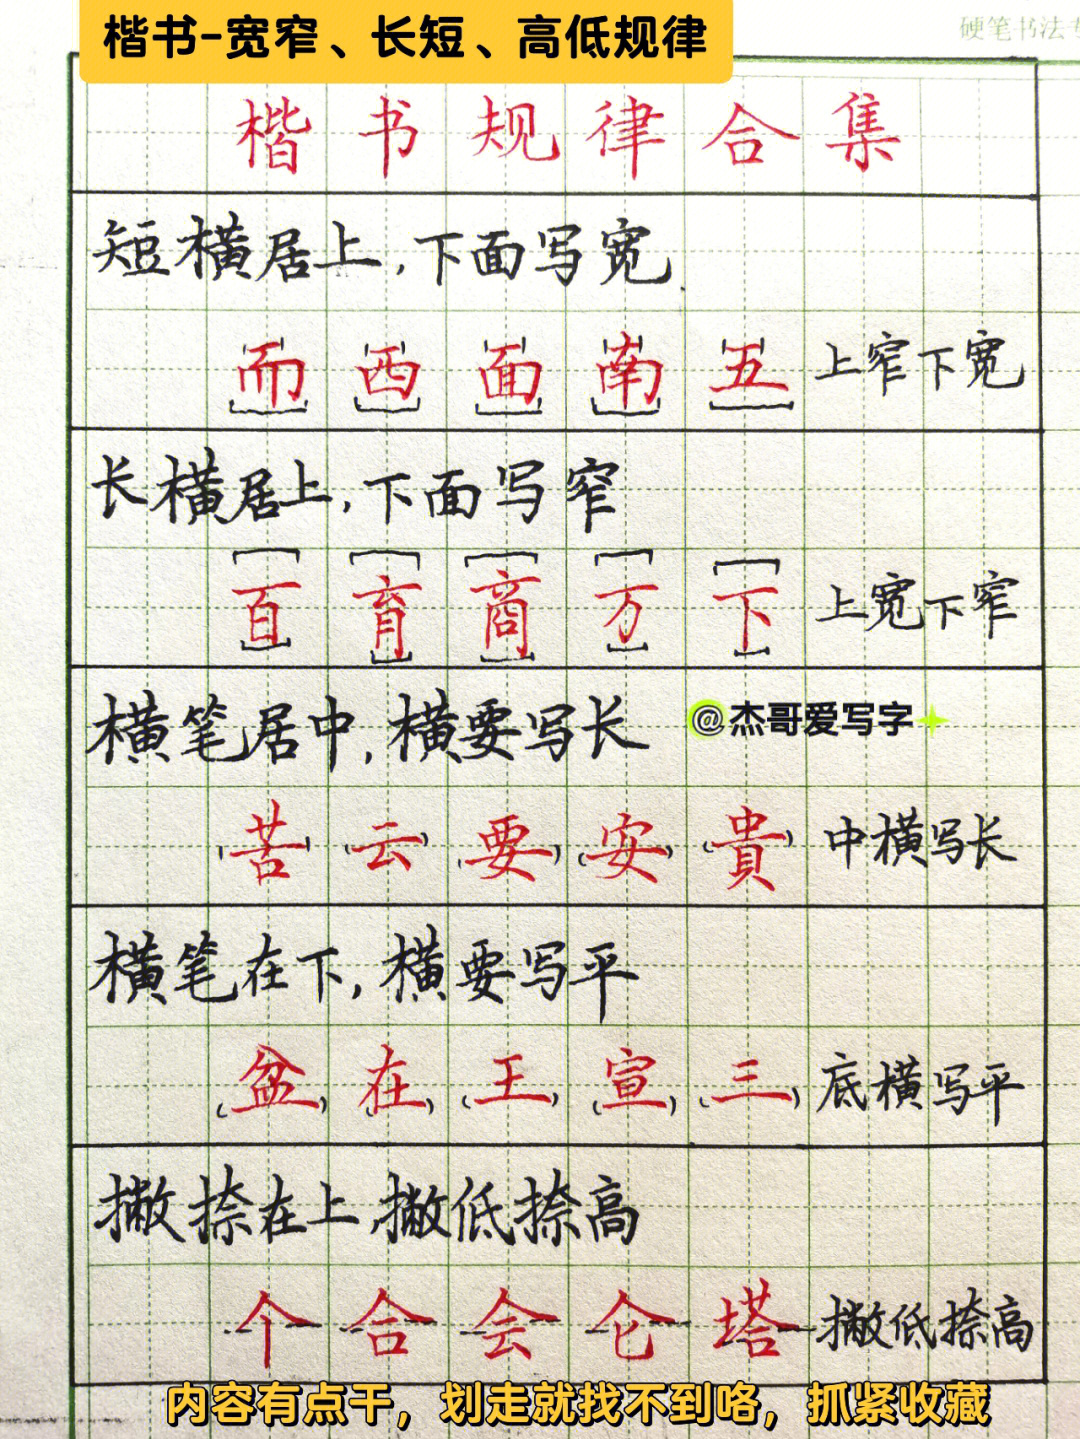 楷书-宽窄、长短、高低规律
硬笔书法专
楷书规律合集
短横居上，下面写宽
而西面南五 上窄下宽
长横居上，下面写窄
百育商万下 上宽下窄
横笔居中，横要写长
@杰哥爱写字
苦云要安貴 中横写长
横笔在下，横要写平
盆在王宣三 底横写平
撇捺在上，撇低捺高
个合会仑塔 撇低捺高
内容有点干，划走就找不到咯，抓紧收藏